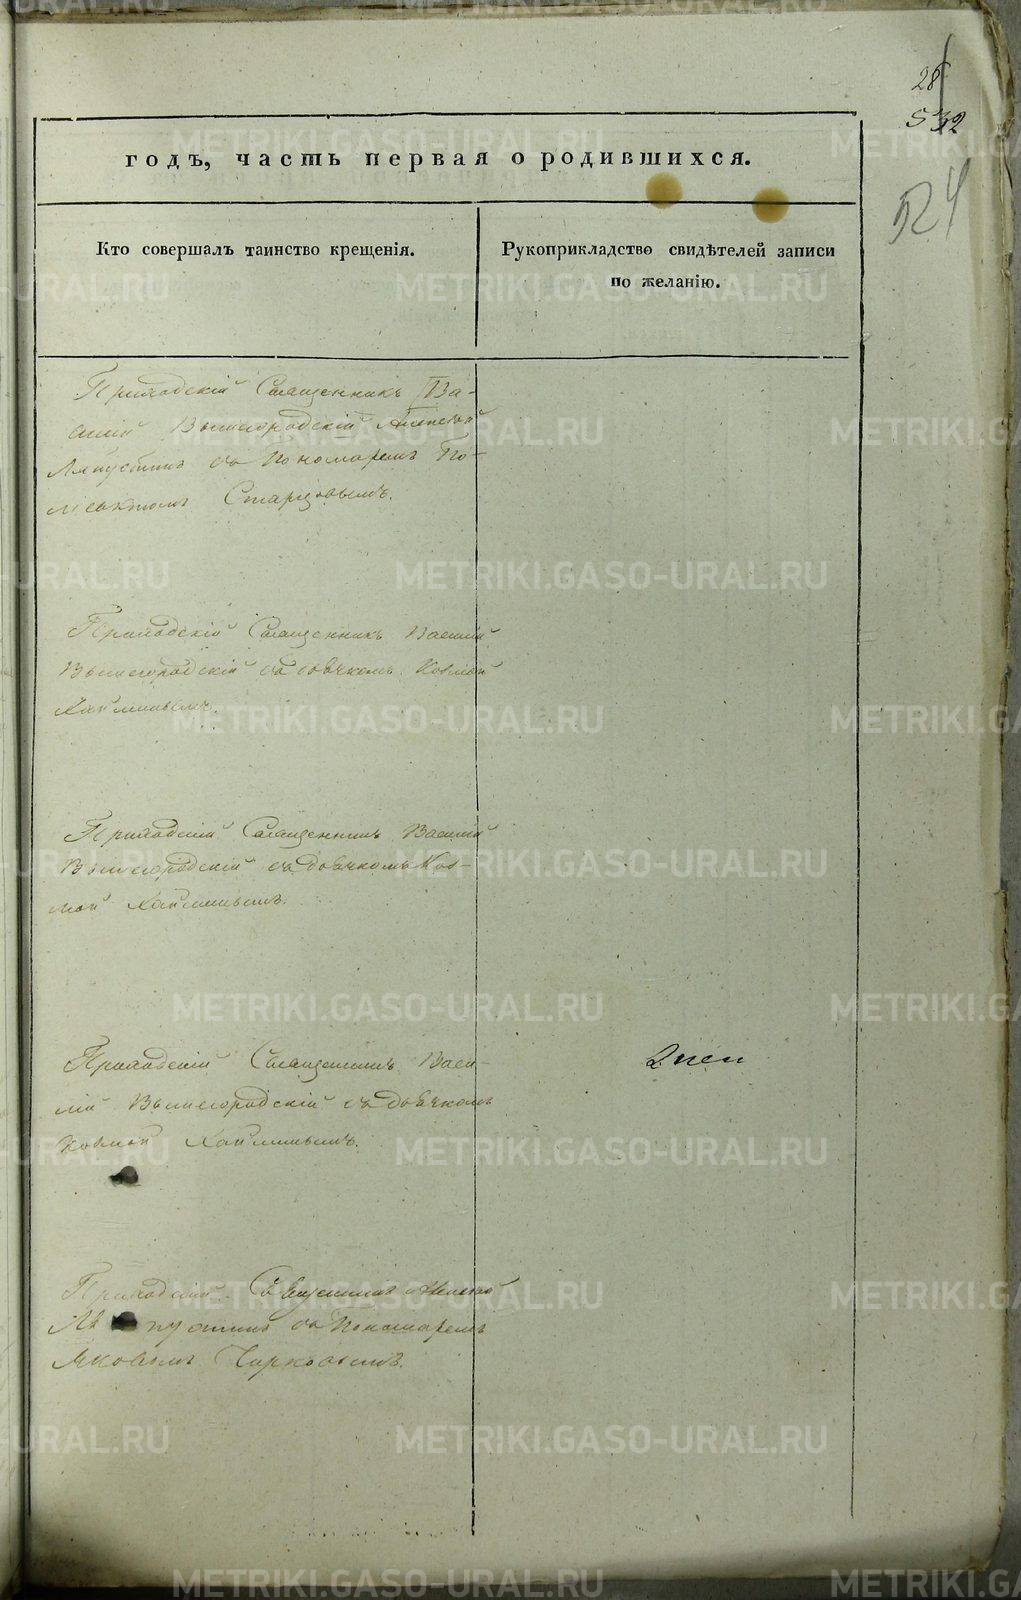 28
532
524
годъ, часть первая о родившихся.
Кто совершалъ таинство крещенія.
Рукоприкладство свидѣтелей записи
по желанію.
Приходскій Священникъ Ва-
силій Вышегородскій Алексѣй
Ляпустинъ съ Пономаремъ По-
ліевктомъ Старцовымъ.
Приходскій Священникъ Василій
Вышегородскій съ дьячкомъ Козмой
Хайминымъ.
Приходскій Священникъ Василій
Вышегородскій съ дьячкомъ Коз-
мой Хайминымъ.
Приходскій Священникъ Васи-
лій Вышегородскій съ дьячкомъ
Козмой Хайминымъ.
Приходскій Священникъ Алексѣй
Ляпустинъ съ Пономаремъ
Яковомъ Чирковымъ.
METRIKI.GASO-URAL.RU